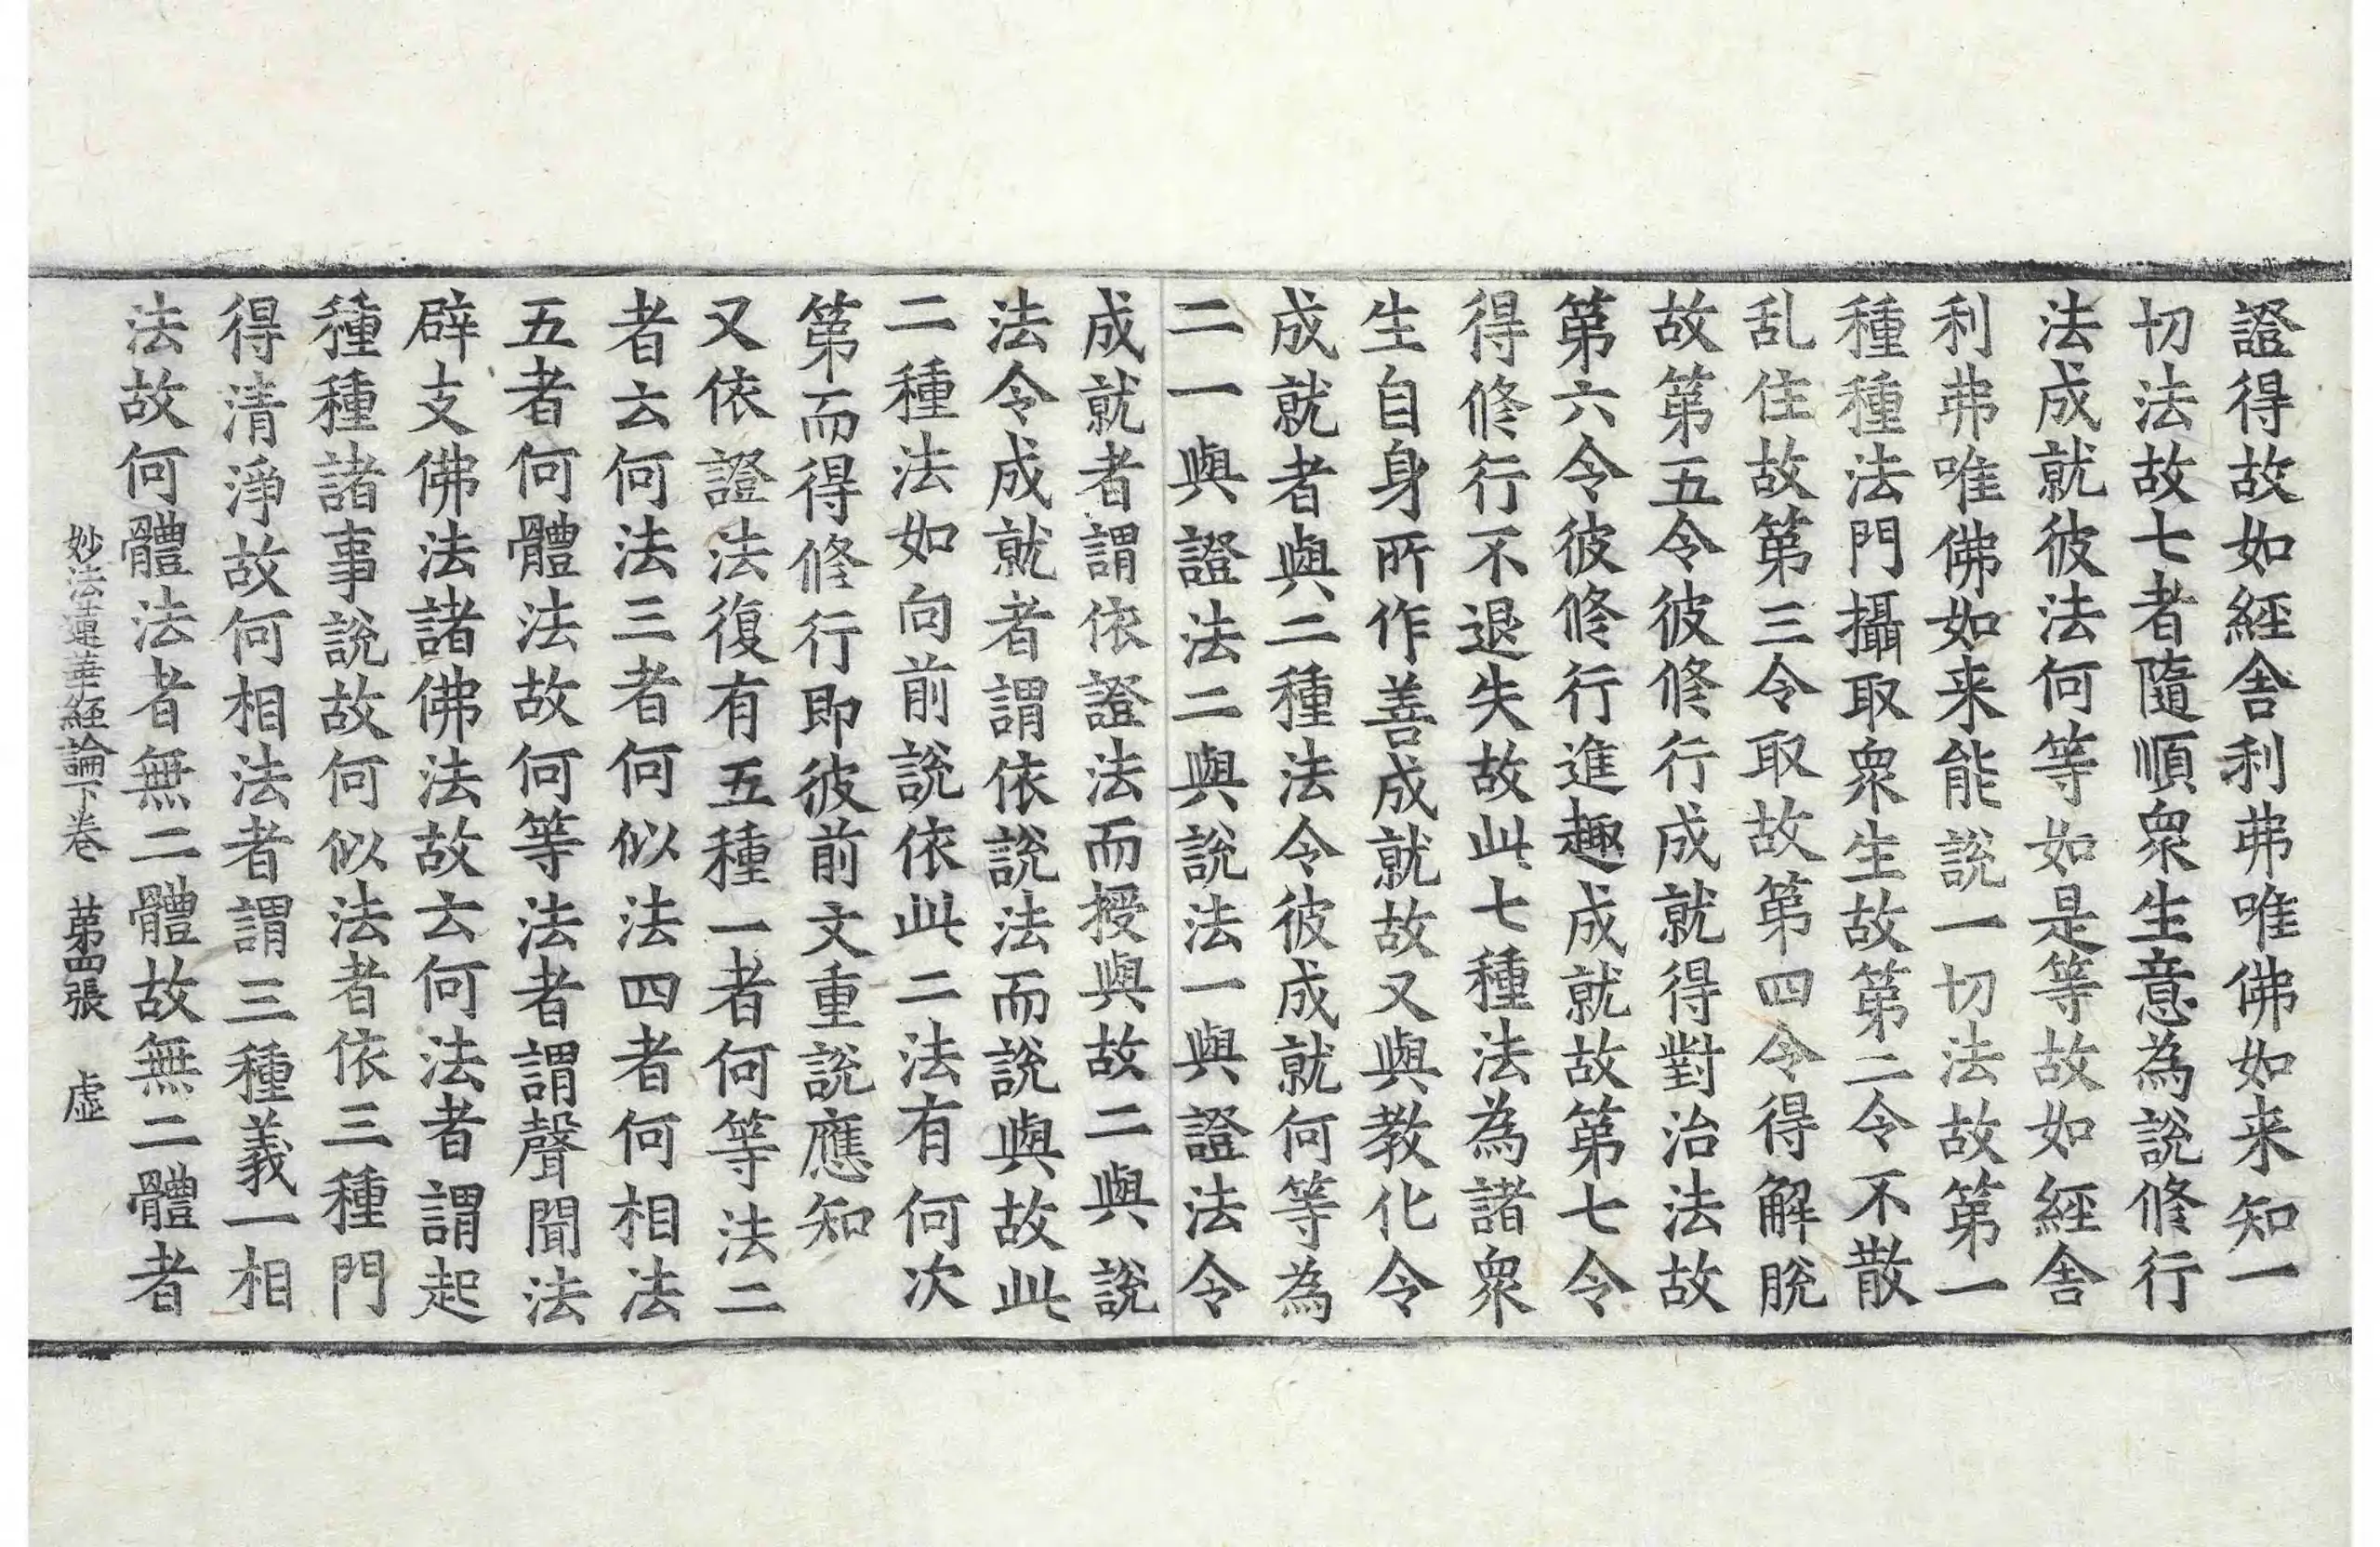 證得故如經舎利弗唯佛如来知一
切法故七者隨順衆生意為說修行
法成就彼法何等如是等故如經舎
利弗唯佛如来能說一切法故第一
種種法門攝取衆生故第二令不散
乱住故第三令取故第四令得解脫
故第五令彼修行成就得對治法故
第六令彼修行進趣成就故第七令
得修行不退失故此七種法為諸衆
生自身所作善成就故又與教化令
成就者與二種法令彼成就何等為
二一與證法二與說法一與證法令
成就者謂依證法而授與故二與說
法令成就者謂依說法而說與故此
二種法如向前說依此二法有何次
第而得修行即彼前文重說應知
又依證法復有五種一者何等法二
者云何法三者何似法四者何相法
五者何體法故何等法者謂聲聞法
辟支佛法諸佛法故云何法者謂起
種種諸事說故何似法者依三種門
得清淨故何相法者謂三種義一相
法故何體法者無二體故無二體者
妙法蓮華經論下卷 第四張 虛